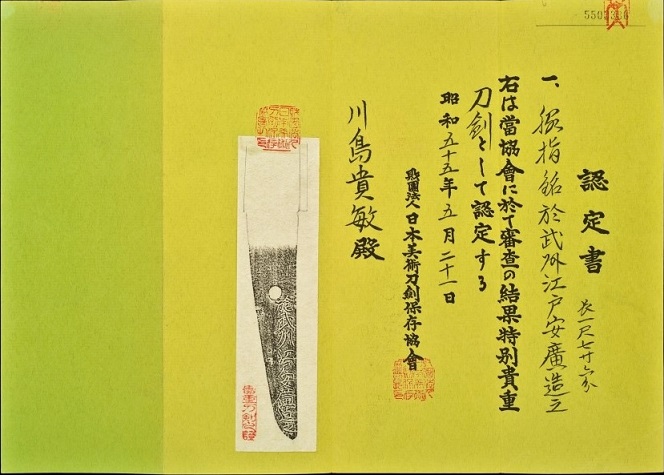 認定書
一、脇指銘於武州江戸安廣造之
長一尺七寸六分
右は當協會に於て審査の結果特別貴重
刀剣として認定する
昭和五十五年五月二十一日
財團法人日本美術刀劍保存協會
川島貴敏殿